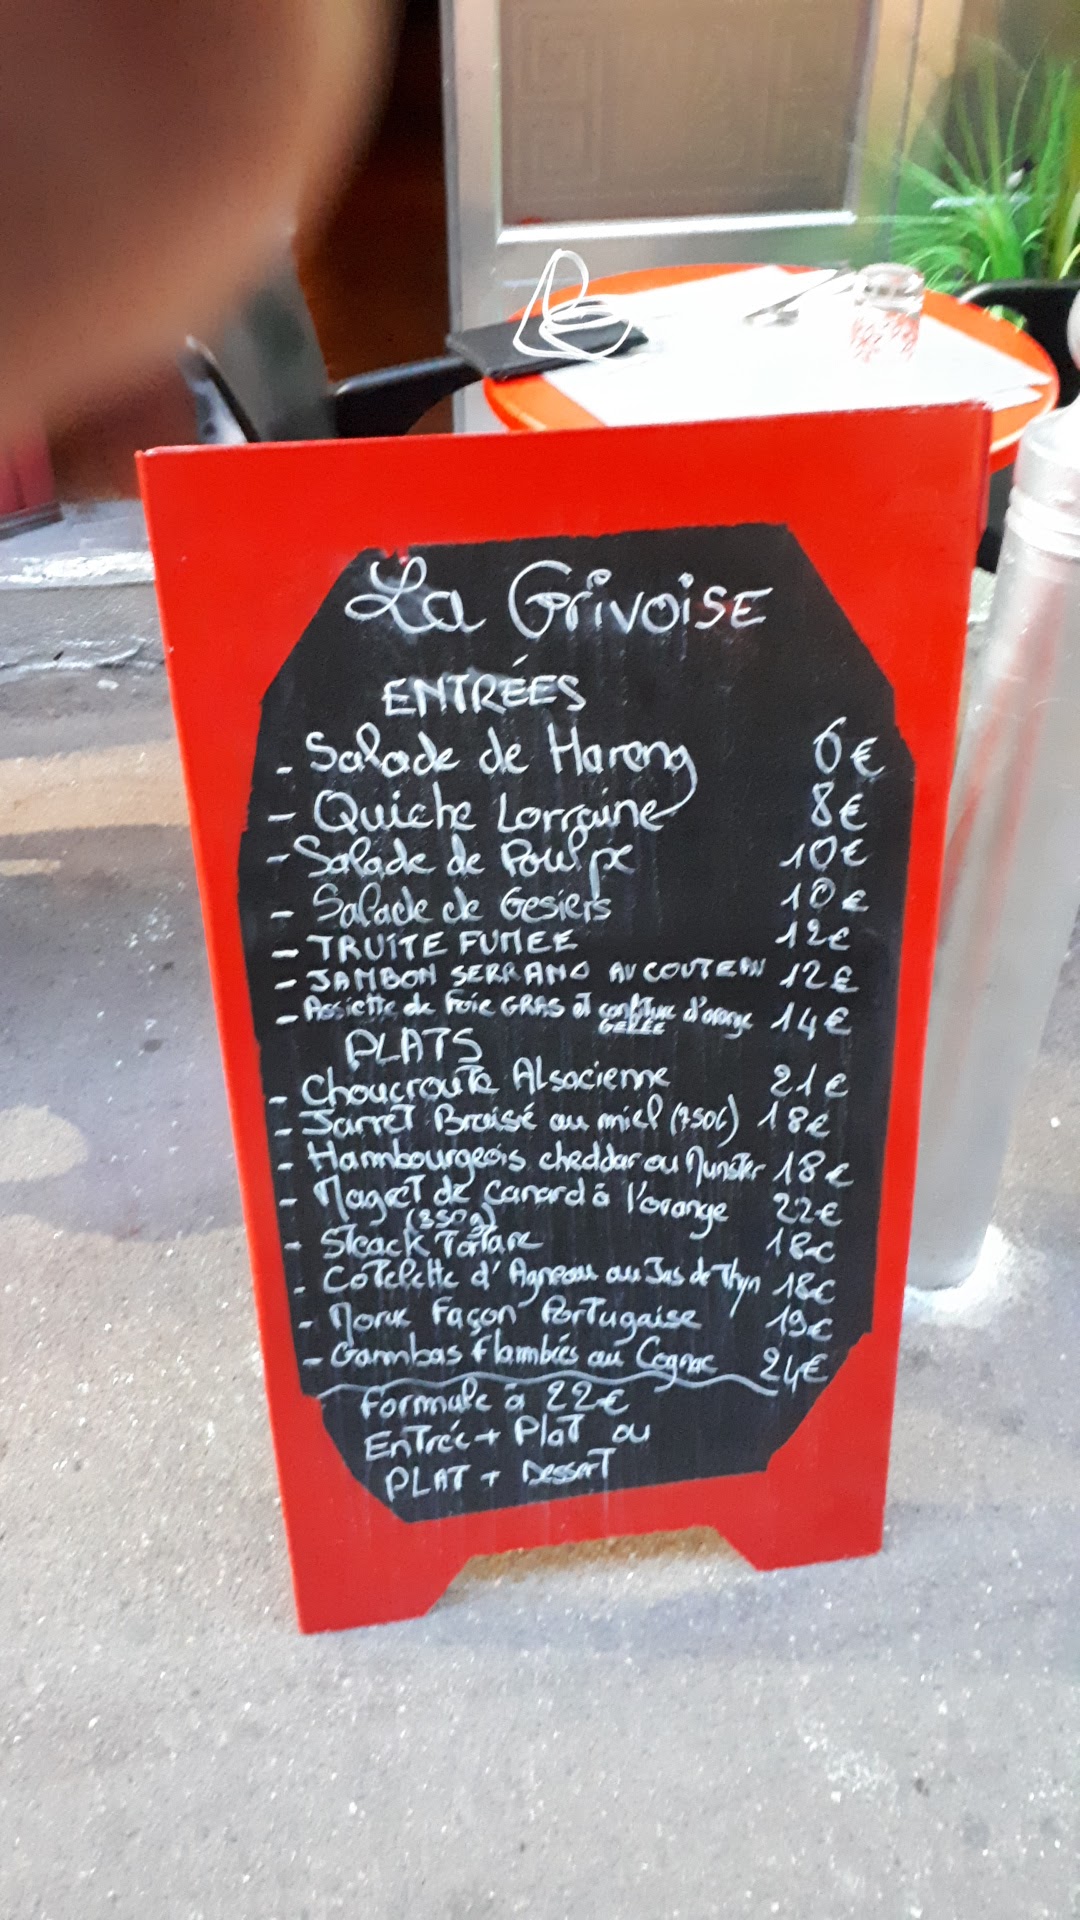 La Grivoise
ENTRÉES
- Salade de Hareng 6€
- Quiche Lorraine 8€
- Salade de Poulpe 10€
- Salade de Gesiers 10€
- TRUITE FUMEE 12€
- JAMBON SERRANO AU COUTEAU 12€
- Assiette de Foie GRAS et confiture d'orange 14€
GELÉE
PLATS
- Choucroute Alsacienne 21€
- Jarret Braisé au miel (750G) 18€
- Hambourgeois cheddar ou Munster 18€
- Magret de Canard à l'orange 22€
(350g)
- Steack Tartare 18€
- Cotelette d'Agneau au Jus de Thyn 18€
- Morue Façon Portugaise 19€
- Gambas flambiés au Cognac 24€
Formule à 22€
Entrée + Plat ou
PLAT + Dessert